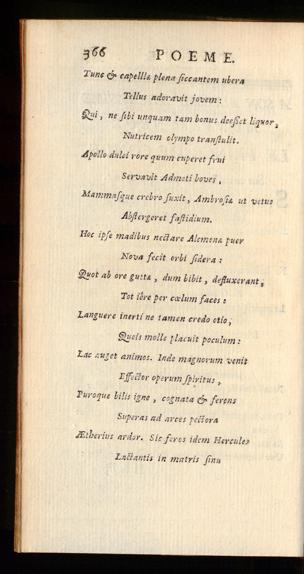 366 POEME.
Tunc & capellæ plena siccantem ubera
Tellus adoravit jovem:
Qui, ne sibi unquam tam bonus deesset liquor,
Nutricem olympo transtulit.
Apollo dulci rore quum cuperet frui
Servavit Admeti boves,
Mammasque crebro suxit, Ambrosiæ ut vetus
Abstergeret fastidium.
Hoc ipse madibus nectare Alcmena puer
Nova fecit orbi sidera:
Quot ab ore guttæ, dum bibit, defluxerant,
Tot ibre per cœlum faces:
Languere inerti ne tamen credo otio,
Queis molle placuit poculum:
Lac auget animos. Inde magnorum venit
Effector operum spiritus,
Puroque bilis igne, cognata & ferens
Superas ad arces pectora
Ætherius ardor. Sic feros idem Hercules
Lactantis in matris sinu